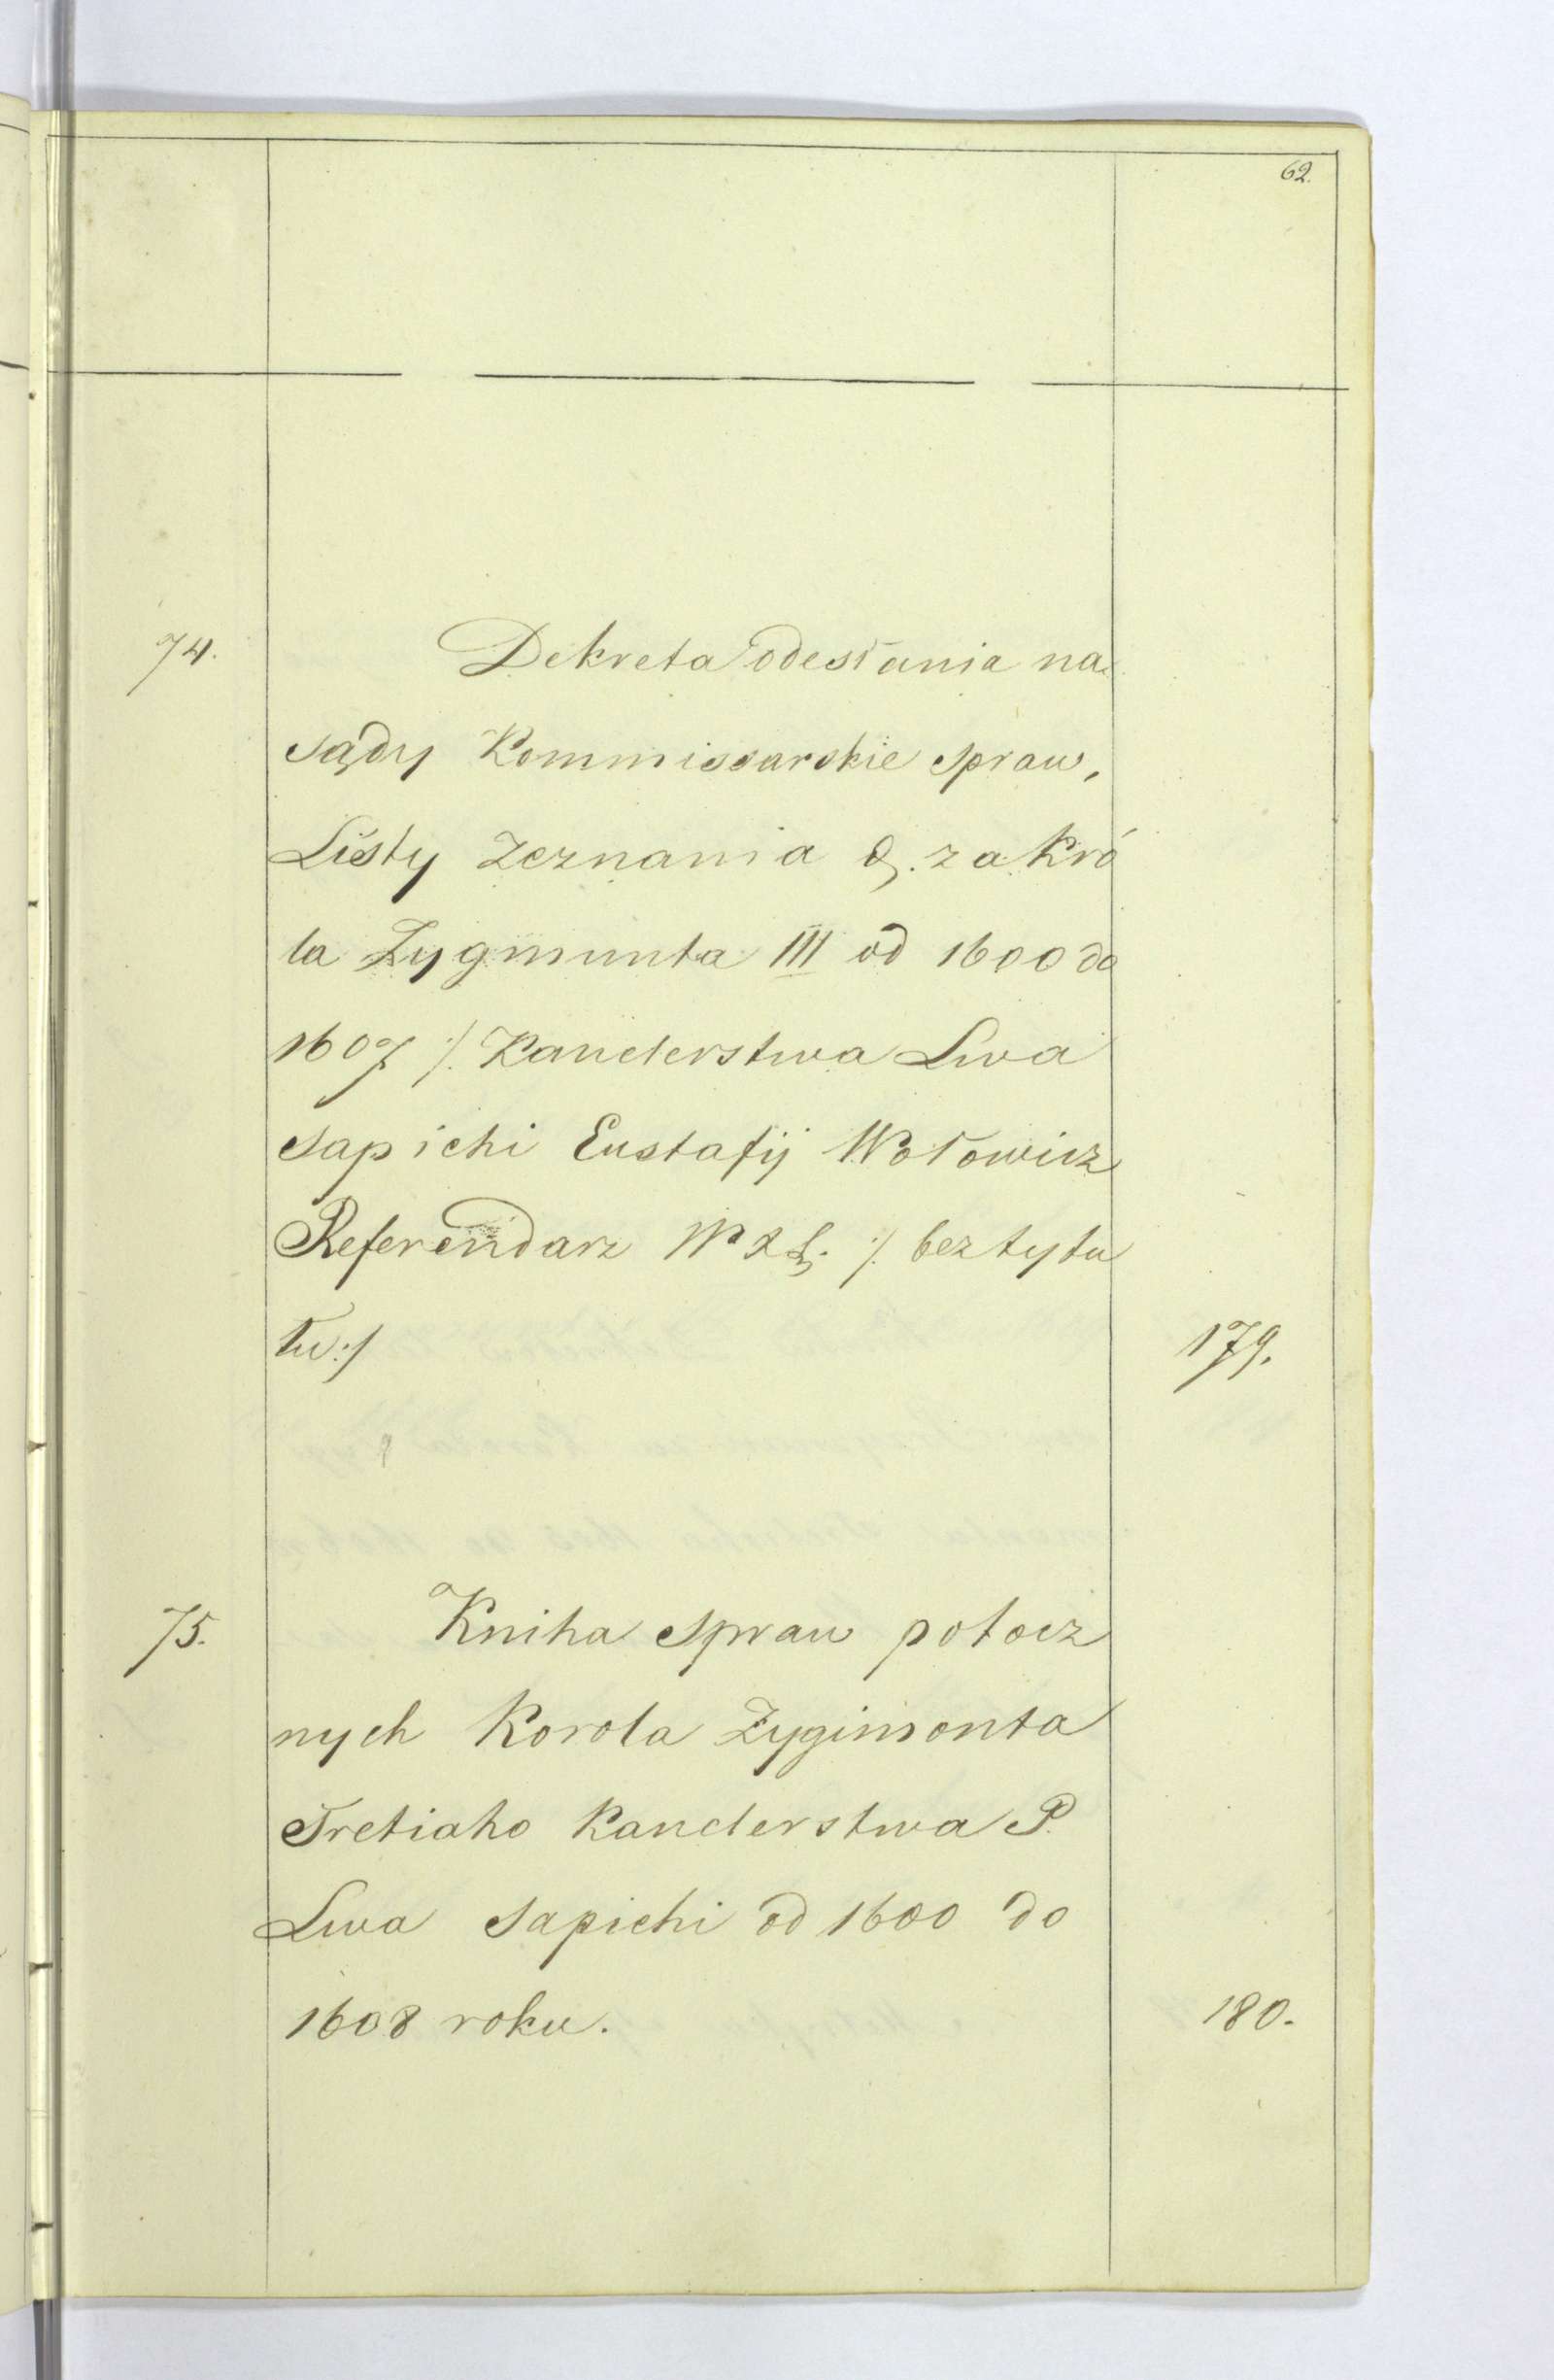 62.
74. Dekreta odesłania na
sądy Kommissarskie spraw,
Listy zeznania &. za Kró
la Zygmunta III od 1600 do
1607 /. Kanclerstwa Lwa
Sapiehi Eustafij Wołowicz
Referendarz W X L. :/. bez tytu
łu :/ 179.
75. Kniha Spraw potocz
nych Korola Zygimonta
Tretiaho Kanclerstwa P.
Lwa Sapiehi od 1600 do
1608 roku. 180.